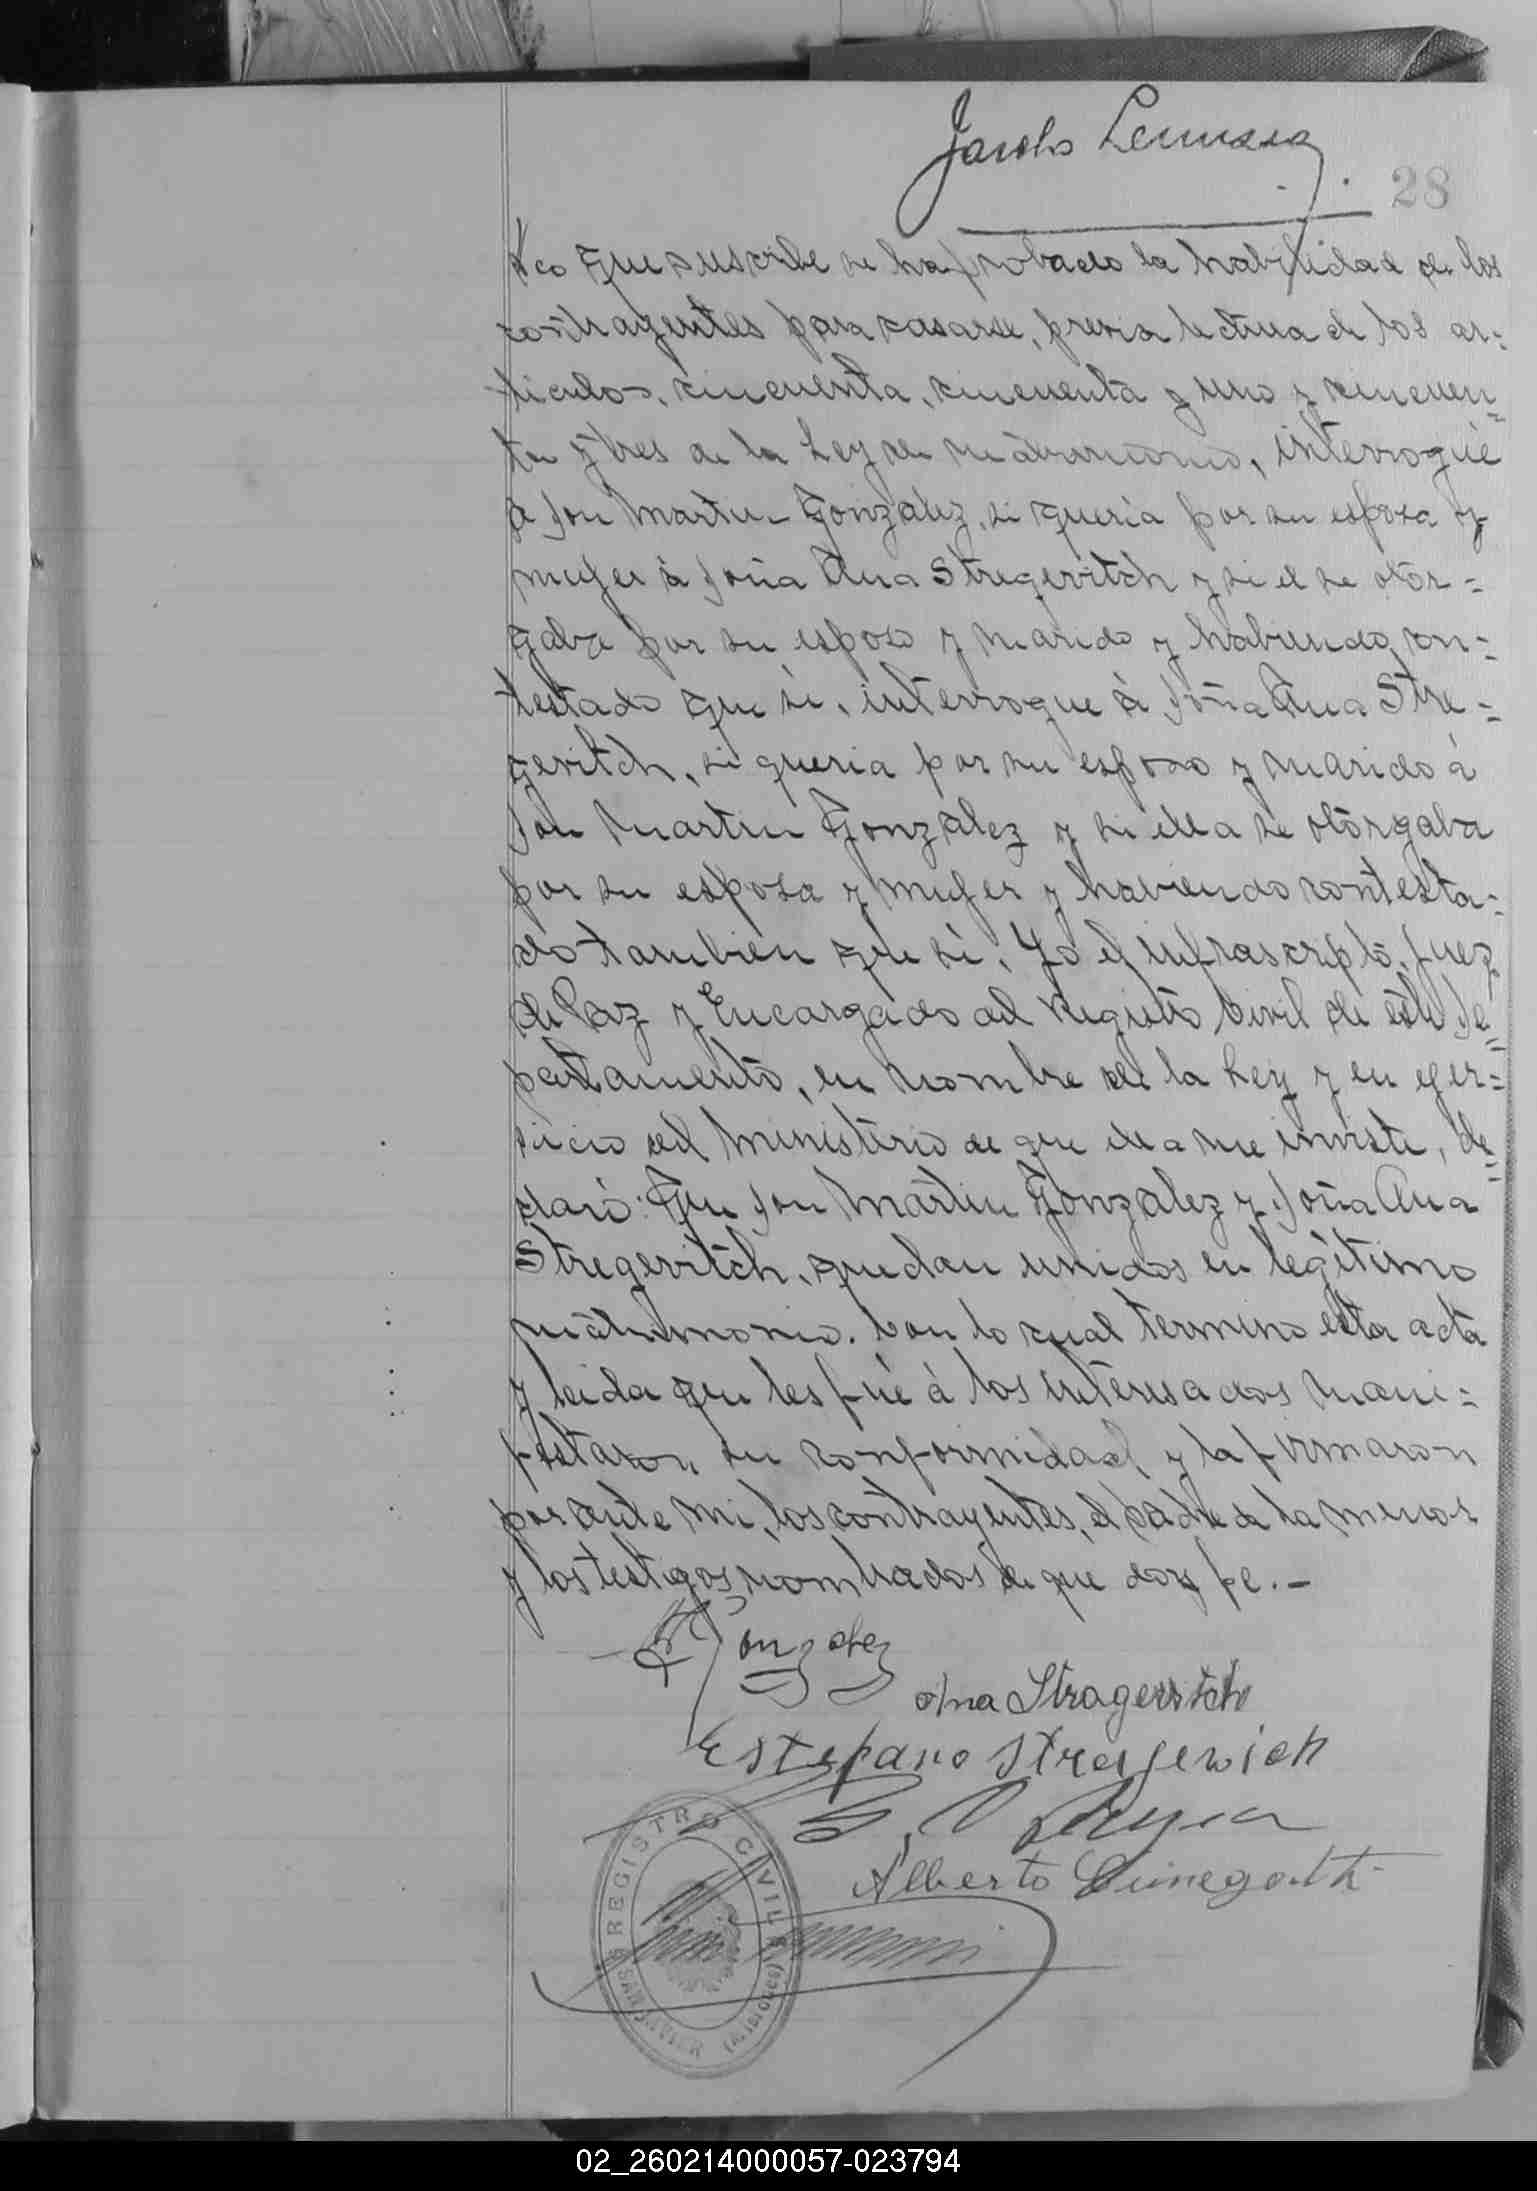 Jacobo
28
que suscribe se ha probado la habilidad de los
contrayentes para casarse, previa lectura de los ar=
ticulos, cincuenta, cincuenta y uno y cincuen=
ta y tres de la Ley de matrimonio, interrogué
a Don Martin Gonzalez, si queria por su esposa y
mujer á Doña Ana Stregevitch y si el se otor=
gaba por su esposo y marido y habiendo con=
testado que si, interrogue á Doña Ana Stre=
gevitch, si queria por su esposo y marido á
Don Martin Gonzalez y si ella se otorgaba
por su esposa y mujer y habiendo contesta=
do tambien que si, Yo el infrascripto, Juez
de Paz y Encargado del Registro Civil de este De=
partamento, en nombre de la Ley y en ejer=
sicio del ministerio de que ella me inviste, de=
claró: Que Don Martin Gonzalez y Doña Ana
Stregevitch, quedan unidos en legitimo
matrimonio. Con lo cual termino esta acta
y leida que les fué á los interesados mani=
festaron su conformidad y la firmaron
por ante mi, los contrayentes, el padre de la menor
y los testigos nombrados de que doy fe.-
Gonzalez
Ana Stragevitch
Estefano Stragewich
Alberto
REGISTRO CIVIL
SAN JAVIER (Misiones)
02_260214000057-023794